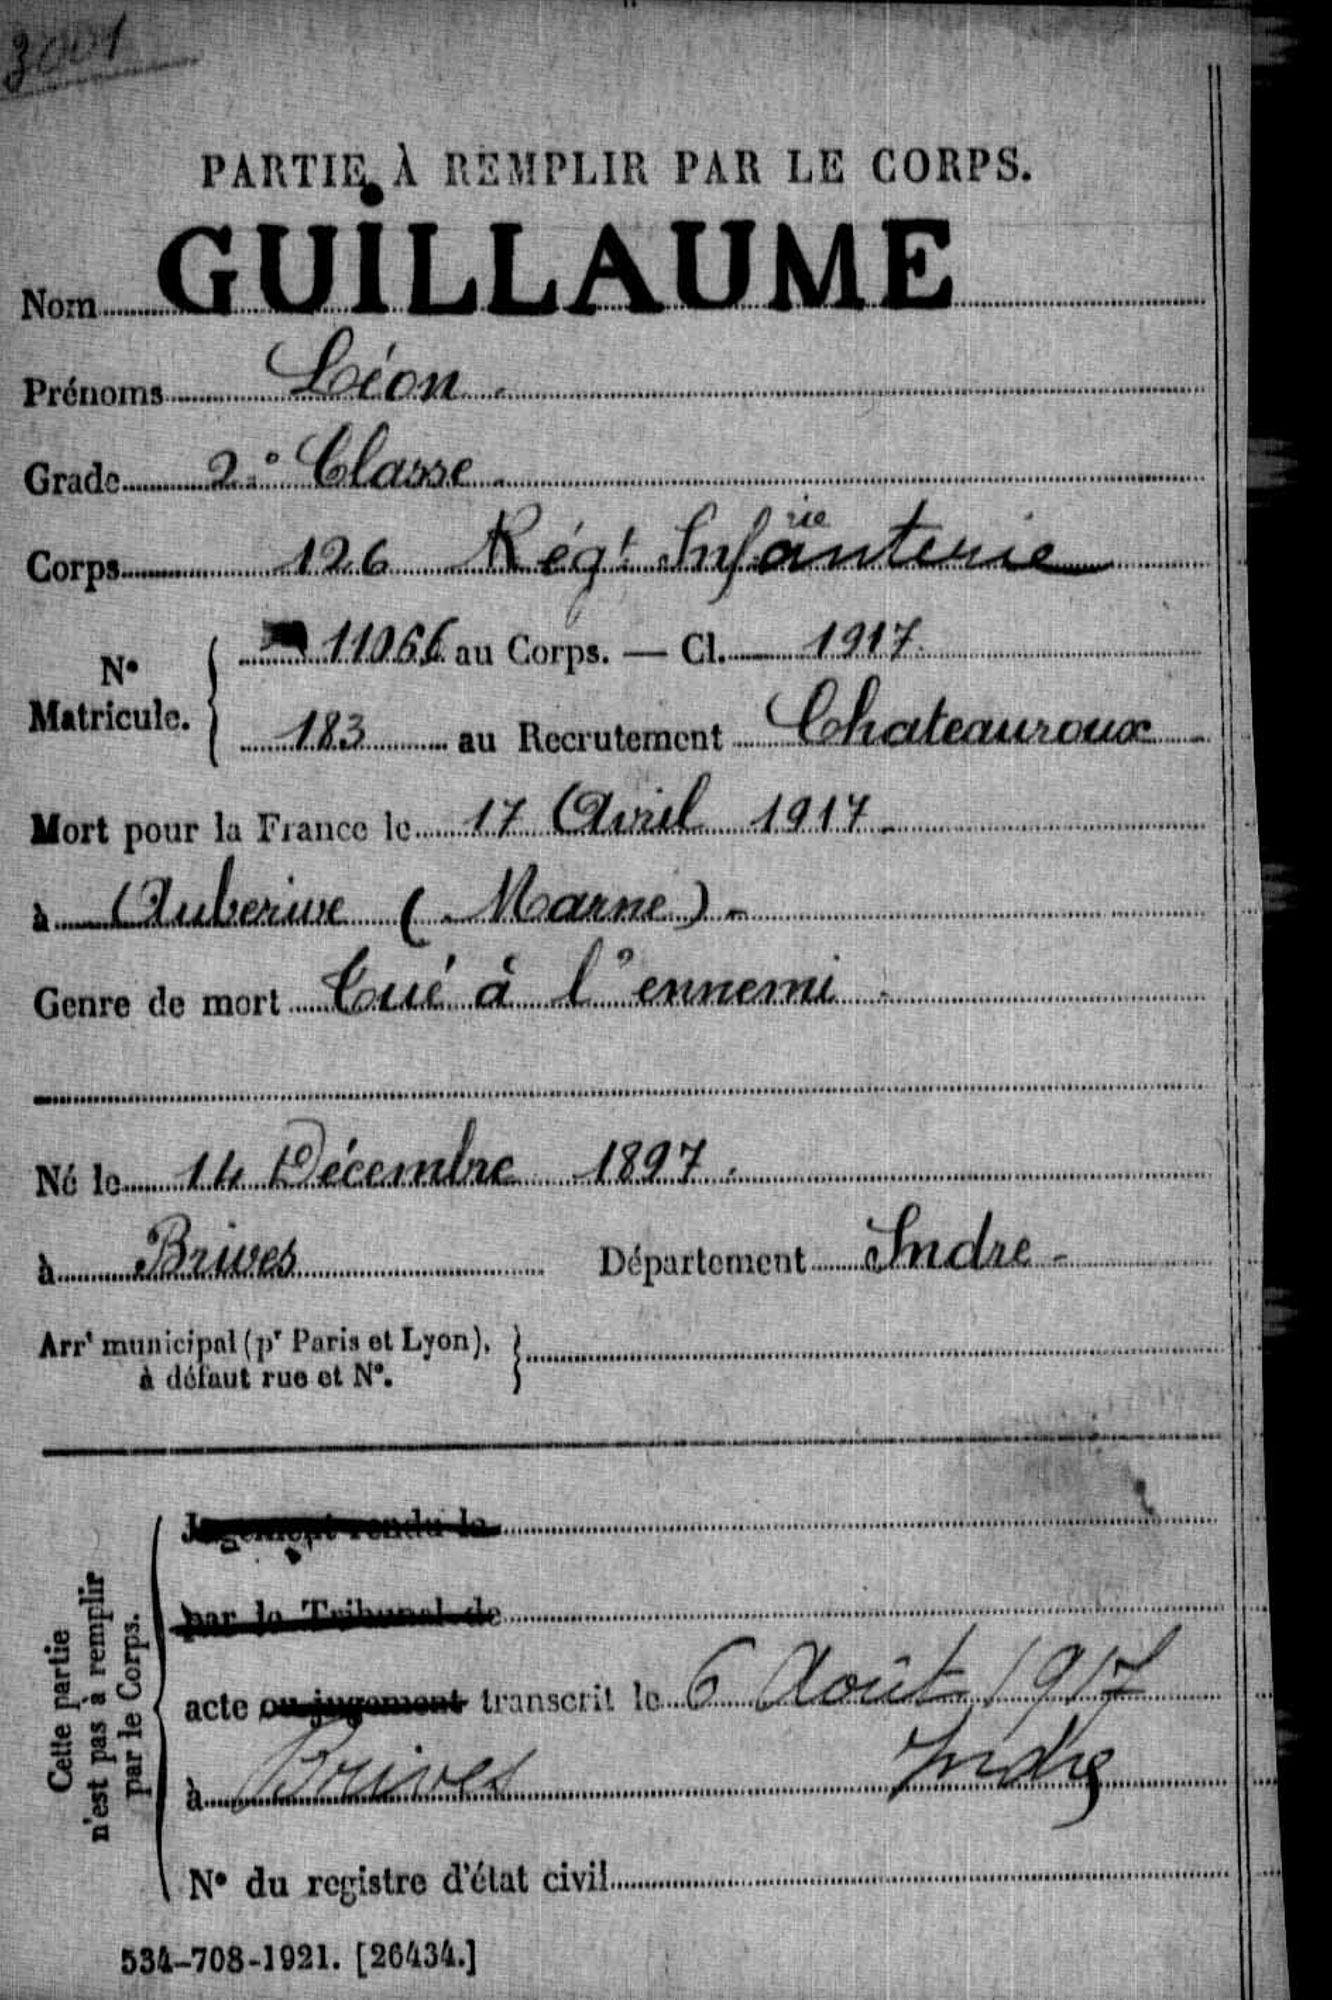 3001
PARTIE À REMPLIR PAR LE CORPS.
Nom GUILLAUME
Prénoms Léon
Grade 2e Classe
Corps 126 Régt Infanterie
rie
N° Matricule. { 11066 au Corps. — Cl. 1917
183 au Recrutement Chateauroux
Mort pour la France le 17 Avril 1917
à Auberive (Marne) -
Genre de mort Tué à l'ennemi
Né le 14 Décembre 1897.
à Brives Département Indre -
Arrt municipal (pr Paris et Lyon), }
à défaut rue et N°.
Cette partie
n'est pas à remplir
par le Corps.
Jugement rendu le
par le Tribunal de
acte ou jugement transcrit le 6 Août 1917
à Brives Indre
N° du registre d'état civil
534-708-1921. [26434.]